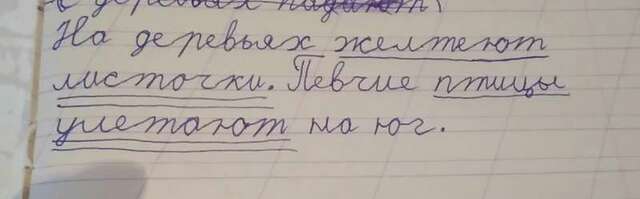 с деревьях падают
На деревьях желтеют
листочки. Певчие птицы
улетают на юг.